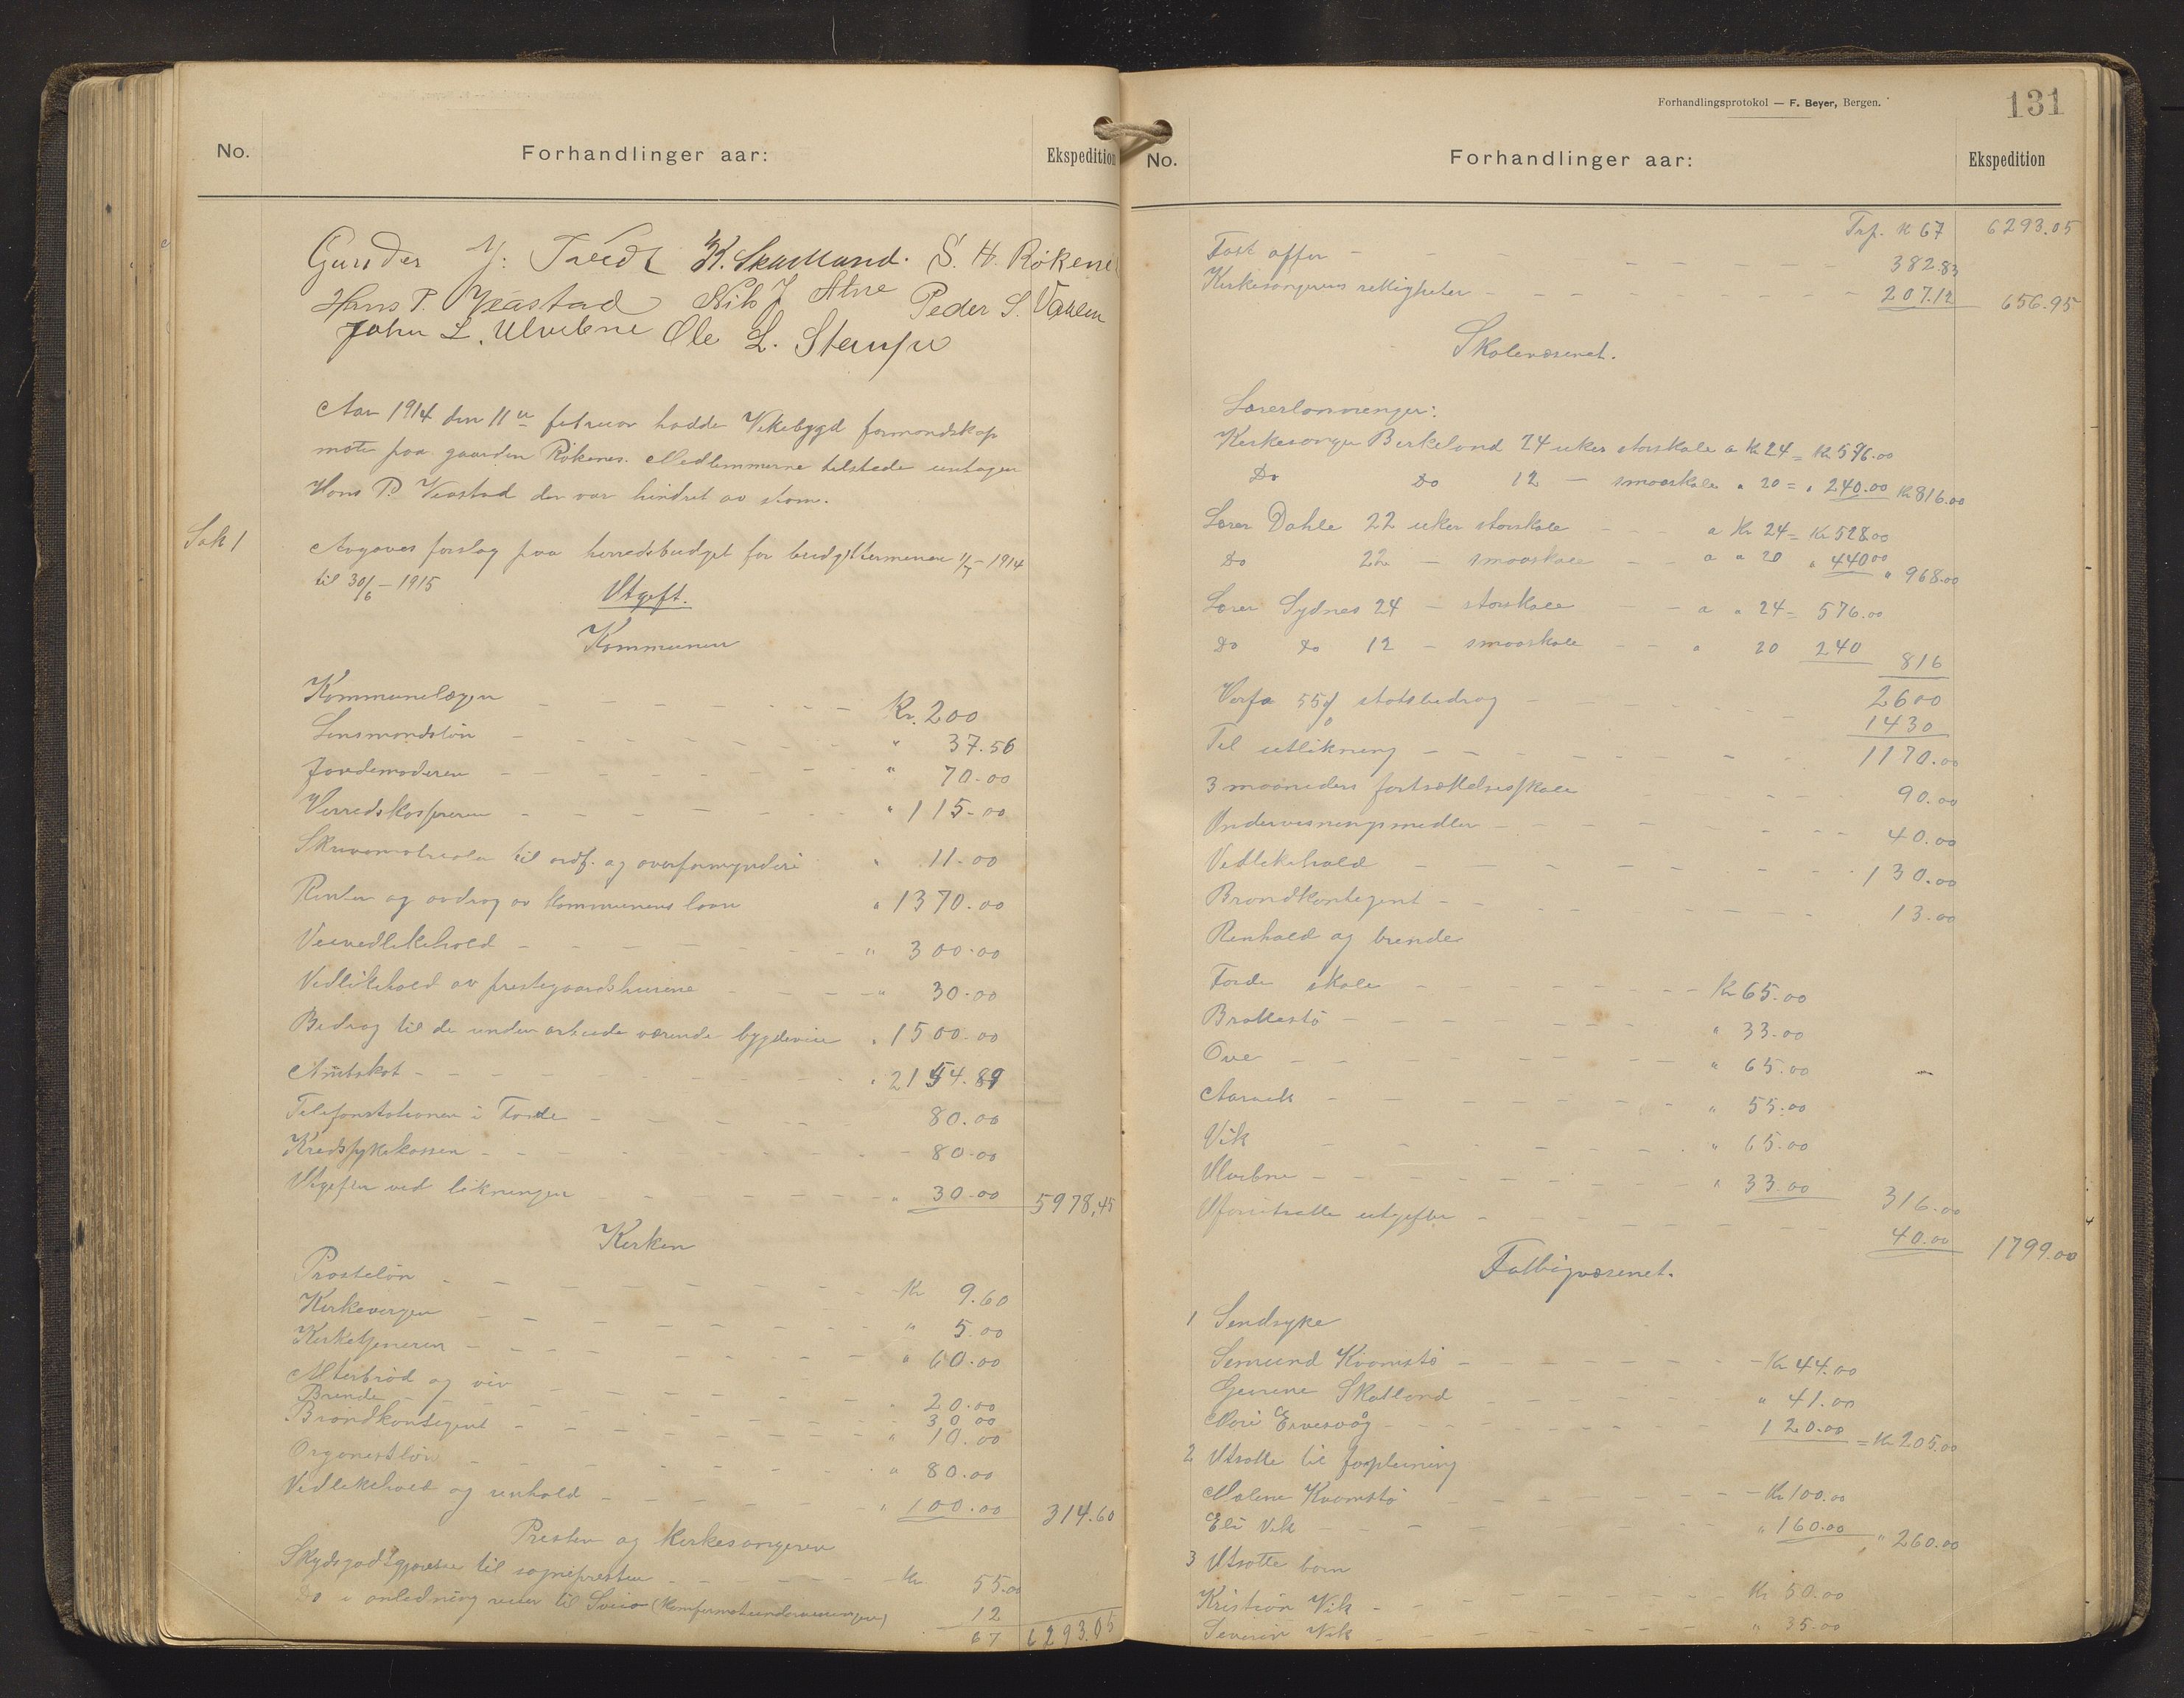 No. Forhandlinger aar: Ekspedition
Gunder J. Tveidt K. Skartland. S. H. Røkenes
Hans P. Veastad Nils J Alne Peder S. Valen
John L. Ulvebne Ole L. Stempe
Aar 1914 den 11te februar hadde Vikebygd formandskap
møte paa gaarden Røkenes. Medlemmerne tilstede untagen
Hans P. Veastad der var hindret av storm.
Sak 1 Avgaves forslag paa herredsbudget for budgetterminen 1/7 - 1914
til 30/6 - 1915
Utgift.
Kommunen
Kommunelægen Kr. 200
Lensmandsløn " 37.56
Jordemoderen " 70.00
Herredskassereren " 115.00
Skrivematrialer til ordf. og overformynderi " 11.00
Renter og avdrag av kommunens laan " 1370.00
Veivedlikehold " 300.00
Vedlikehold av prestegaardshusene " 30.00
Bidrag til de under arbeide værende bygdeveie " 1500.00
Amtskat " 2154.89
Telefonstationen i Førde 80.00
Kredssykekassen 80.00
Utgifter ved likningen " 30.00 5978.45
Kirken
Prosteløn Kr 9.60
Kirkevergen " 5.00
Kirketjeneren " 60.00
Alterbrød og vin " 20.00
Brende 30.00
Brandkontigent " 10.00
Organistløn " 80.00
Vedlikehold og renhold " 100.00 314.60
Presten og kirkesangeren
Skydsgodtgjørelse til sognepresten Kr 55.00
Do i anledning reiser til Sveio (konfirmationsundervisningen) 12
67 6293.05
Forhandlingsprotokol — F. Beyer, Bergen.
131
No. Forhandlinger aar: Ekspedition
Trp. K 67 6293.05
Fast offer 382.83
Kirkesangerens rettigheter 207.12 656.95
Skolevæsenet.
Lærerlønninger:
Kirkesanger Birkeland 24 uker storskole a Kr 24 = Kr 576.00
Do Do 12 — smaaskole " 20 = " 240.00 Kr 816.00
Lærer Dahle 22 uker storskole a Kr 24 = Kr 528.00
Do 22 — smaaskole a " 20 " 440.00 " 968.00
Lærer Sydnes 24 — storskole a " 24 = 576.00
Do Do 12 — smaaskole " 20 240 816
2600
Herfra 55% statsbidrag 1430
Til utlikning 1170.00
3 maaneders fortsættelsesskole 90.00
Undervisningsmidler 40.00
Vedlikehold 130.00
Brandkontigent 13.00
Renhold og brende
Førde skole Kr 65.00
Brattestø " 33.00
Ove " 65.00
Aarvik " 55.00
Vik " 65.00
Ulvebne " 33.00 316.00
Uforutsatte utgifter 40.00 1799.00
Fattigvæsenet.
1 Sindsyke
Semund Kvamstø Kr 44.00
Gurine Skotland " 41.00
Mari Ervesvåg 120.00 = Kr 205.00
2 Utsatte til forpleining
Malene Kvamstø Kr 100.00
Eli Vik " 160.00 " 260.00
3 Utsatte barn
Kristian Vik Kr 50.00
Severin Vik " 35.00